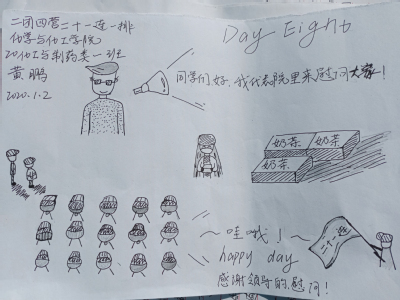 二团四营二十一连一排
化学与化工学院
20化工与制药类一班
黄鹏
2020.1.2
Day Eight
同学们好,我代表院里来慰问大家!
奶茶
奶茶
奶茶
~哇哦!~
happy day
感谢领导的慰问!
二十一连